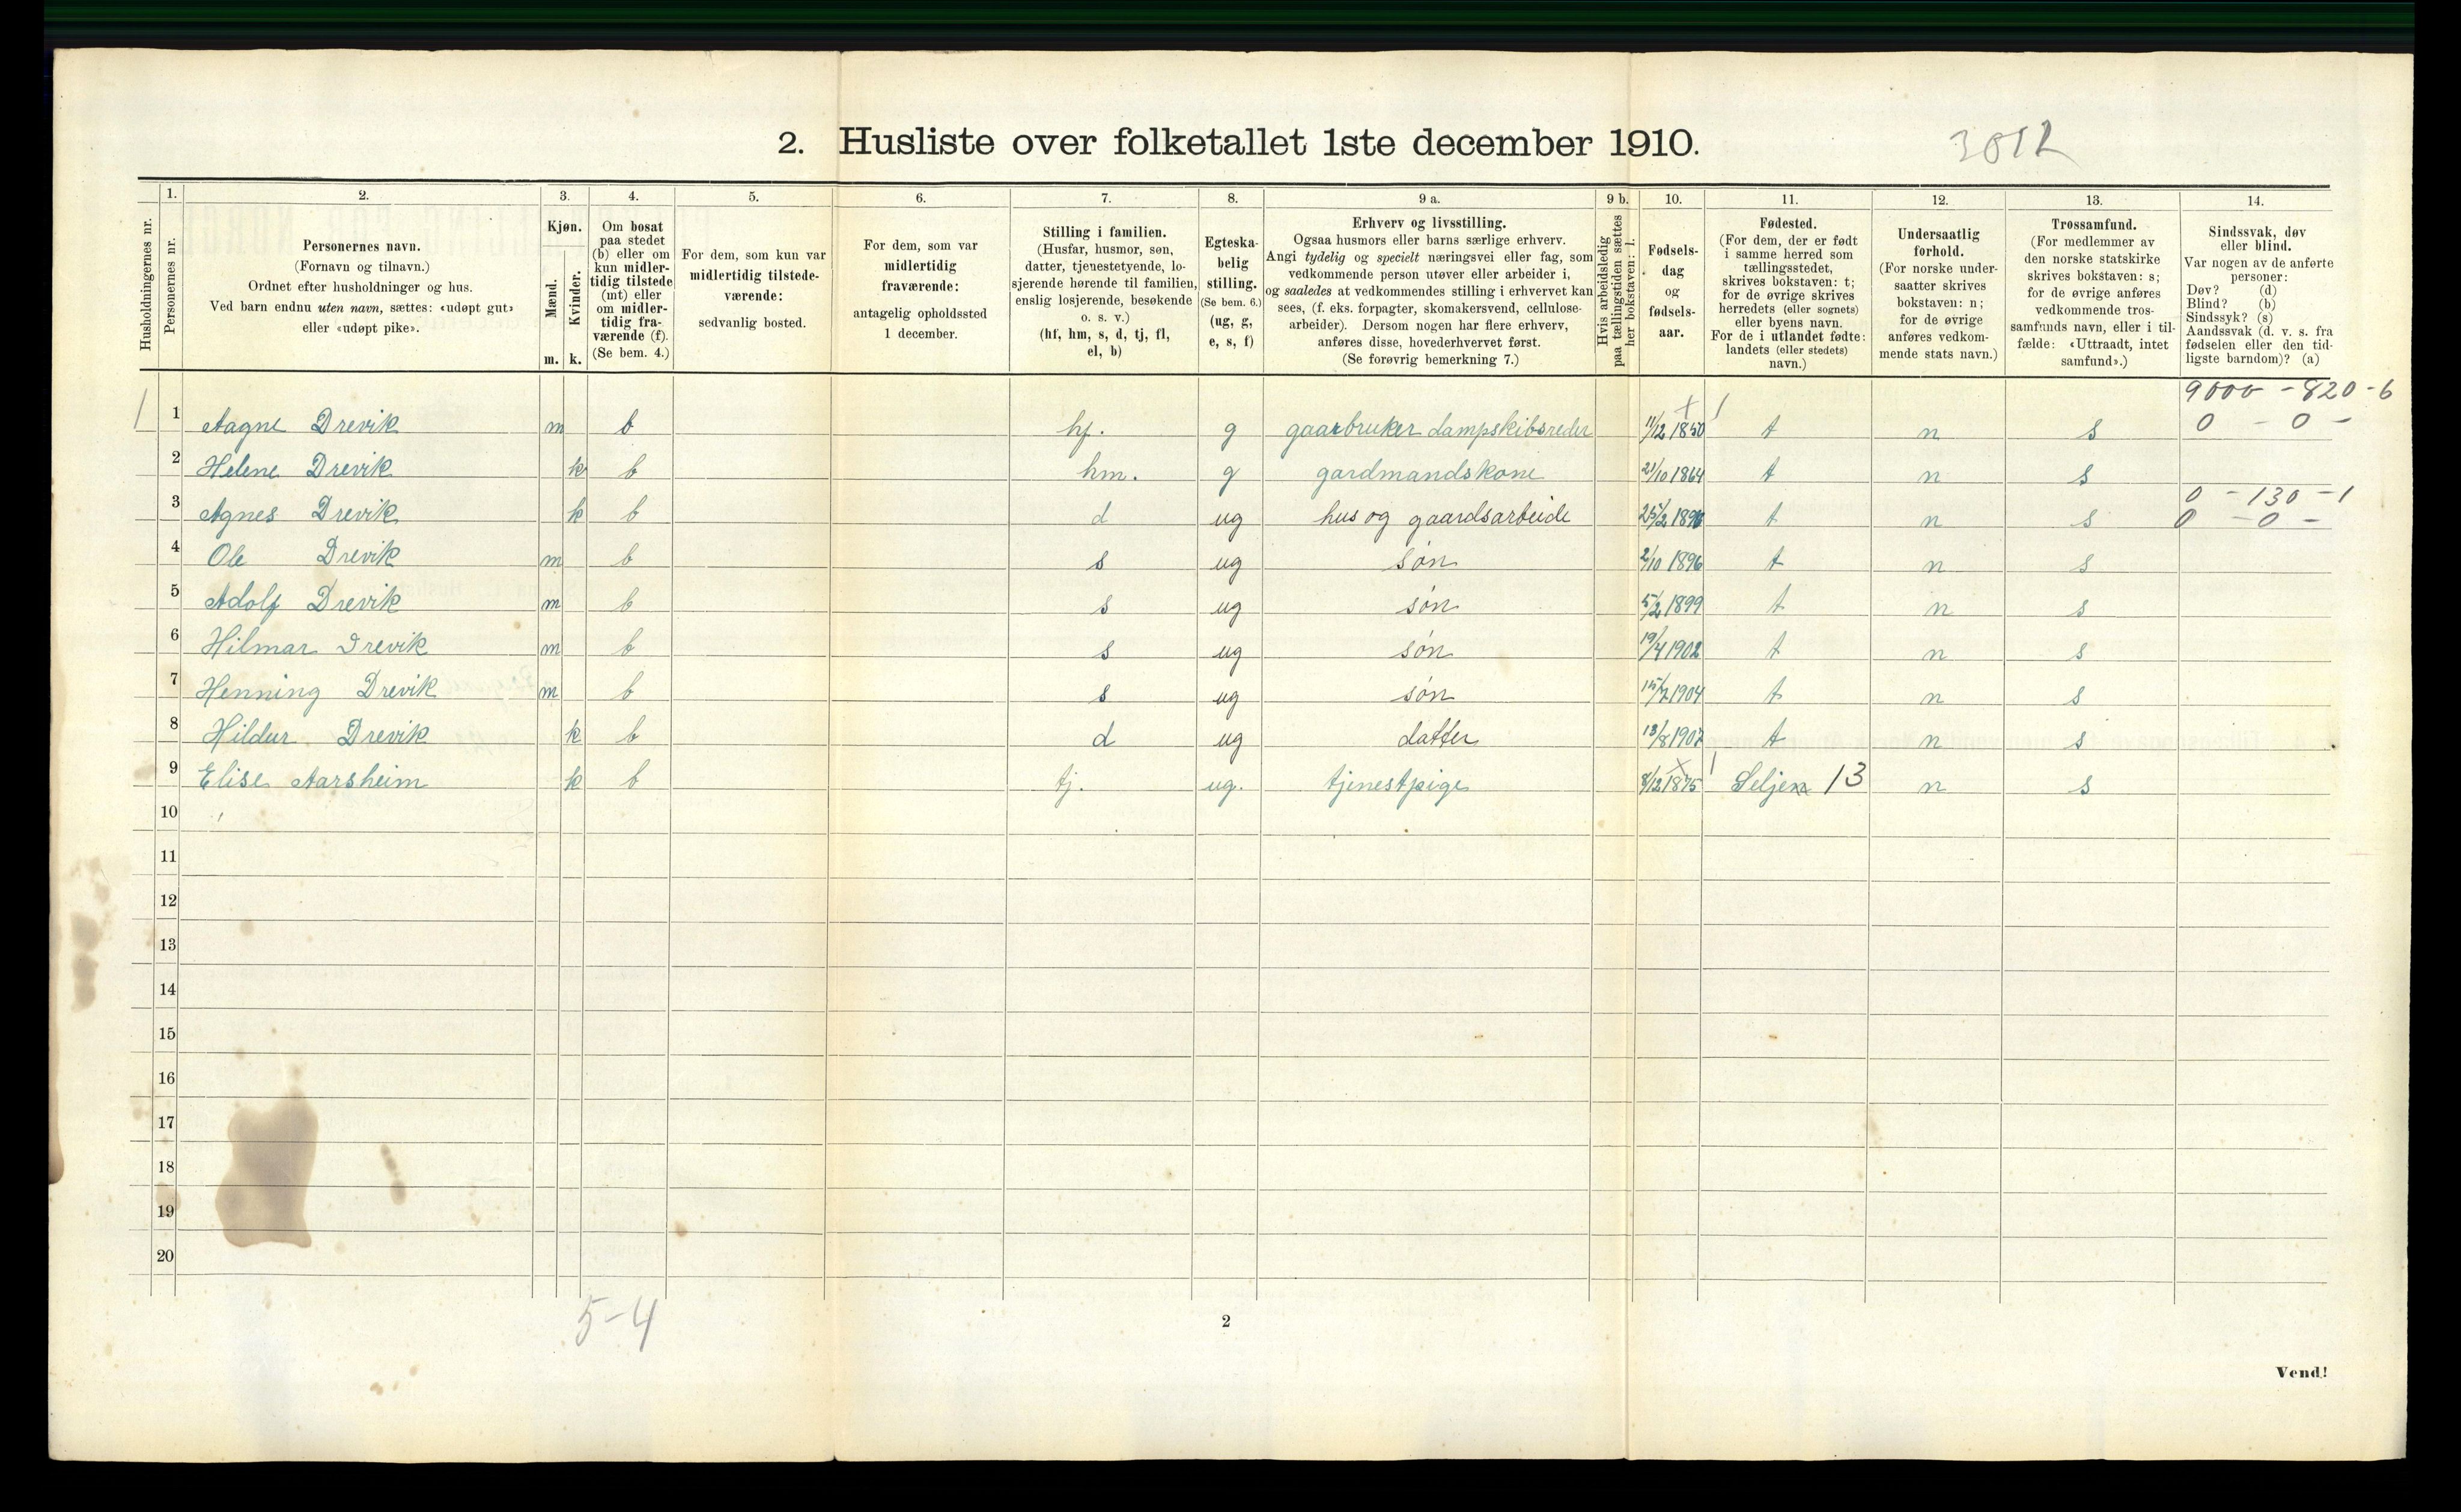 2. Husliste over folketallet 1ste december 1910.
3012
1. 2. 3. 4. 5. 6. 7. 8. 9 a. 9 b. 10. 11. 12. 13. 14.
Husholdningernes nr.
Personernes nr.
Personernes navn.
(Fornavn og tilnavn.)
Ordnet efter husholdninger og hus.
Ved barn endnu uten navn, sættes: «udøpt gut»
eller «udøpt pike».
Kjøn.
Mænd.
Kvinder.
m. k.
Om bosat
paa stedet
(b) eller om
kun midler-
tidig tilstede
(mt) eller
om midler-
tidig fra-
værende (f).
(Se bem. 4.)
For dem, som kun var
midlertidig tilstede-
værende:
sedvanlig bosted.
For dem, som var
midlertidig
fraværende:
antagelig opholdssted
1 december.
Stilling i familien.
(Husfar, husmor, søn,
datter, tjenestetyende, lo-
sjerende hørende til familien,
enslig losjerende, besøkende
o. s. v.)
(hf, hm, s, d, tj, fl,
el, b)
Egteska-
belig
stilling.
(Se bem. 6.)
(ug, g,
e, s, f)
Erhverv og livsstilling.
Ogsaa husmors eller barns særlige erhverv.
Angi tydelig og specielt næringsvei eller fag, som
vedkommende person utøver eller arbeider i,
og saaledes at vedkommendes stilling i erhvervet kan
sees, (f. eks. forpagter, skomakersvend, cellulose-
arbeider). Dersom nogen har flere erhverv,
anføres disse, hovederhvervet først.
(Se forøvrig bemerkning 7.)
Hvis arbeidsledig
paa tællingstiden sættes
her bokstaven: l.
Fødsels-
dag
og
fødsels-
aar.
Fødested.
(For dem, der er født
i samme herred som
tællingsstedet,
skrives bokstaven: t;
for de øvrige skrives
herredets (eller sognets)
eller byens navn.
For de i utlandet fødte:
landets (eller stedets)
navn.)
Undersaatlig
forhold.
(For norske under-
saatter skrives
bokstaven: n;
for de øvrige
anføres vedkom-
mende stats navn.)
Trossamfund.
(For medlemmer av
den norske statskirke
skrives bokstaven: s;
for de øvrige anføres
vedkommende tros-
samfunds navn, eller i til-
fælde: «Uttraadt, intet
samfund».)
Sindssvak, døv
eller blind.
Var nogen av de anførte
personer:
Døv? (d)
Blind? (b)
Sindssyk? (s)
Aandssvak (d. v. s. fra
fødselen eller den tid-
ligste barndom)? (a)
9000 - 820 - 6
1 1 Aagne Drevik m b hf. g gaarbruker dampskibsreder 11/12 1850 t n s 0 - 0 -
2 Helene Drevik k b hm. g gardmandskone 21/10 1864 t n s
0 - 130 - 1
3 Agnes Drevik k b d ug hus og gaardsarbeide t n s 0 - 0 -
4 Ole Drevik m b s ug søn 2/10 1896 t n s
5 Adolf Drevik m b s ug søn 5/2 1899 t n s
6 Hilmar Drevik m b s ug søn 19/4 1902 t n s
7 Henning Drevik m b s ug søn 15/7 1904 t n s
8 Hildur Drevik k b d ug datter 13/8 1907 t n s
9 Elise Aarsheim k b tj. ug. tjenestpige 8/12 1875 Selje 13 n s
10
11
12
13
14
15
16
17
18
19
20
5-4
2
Vend!